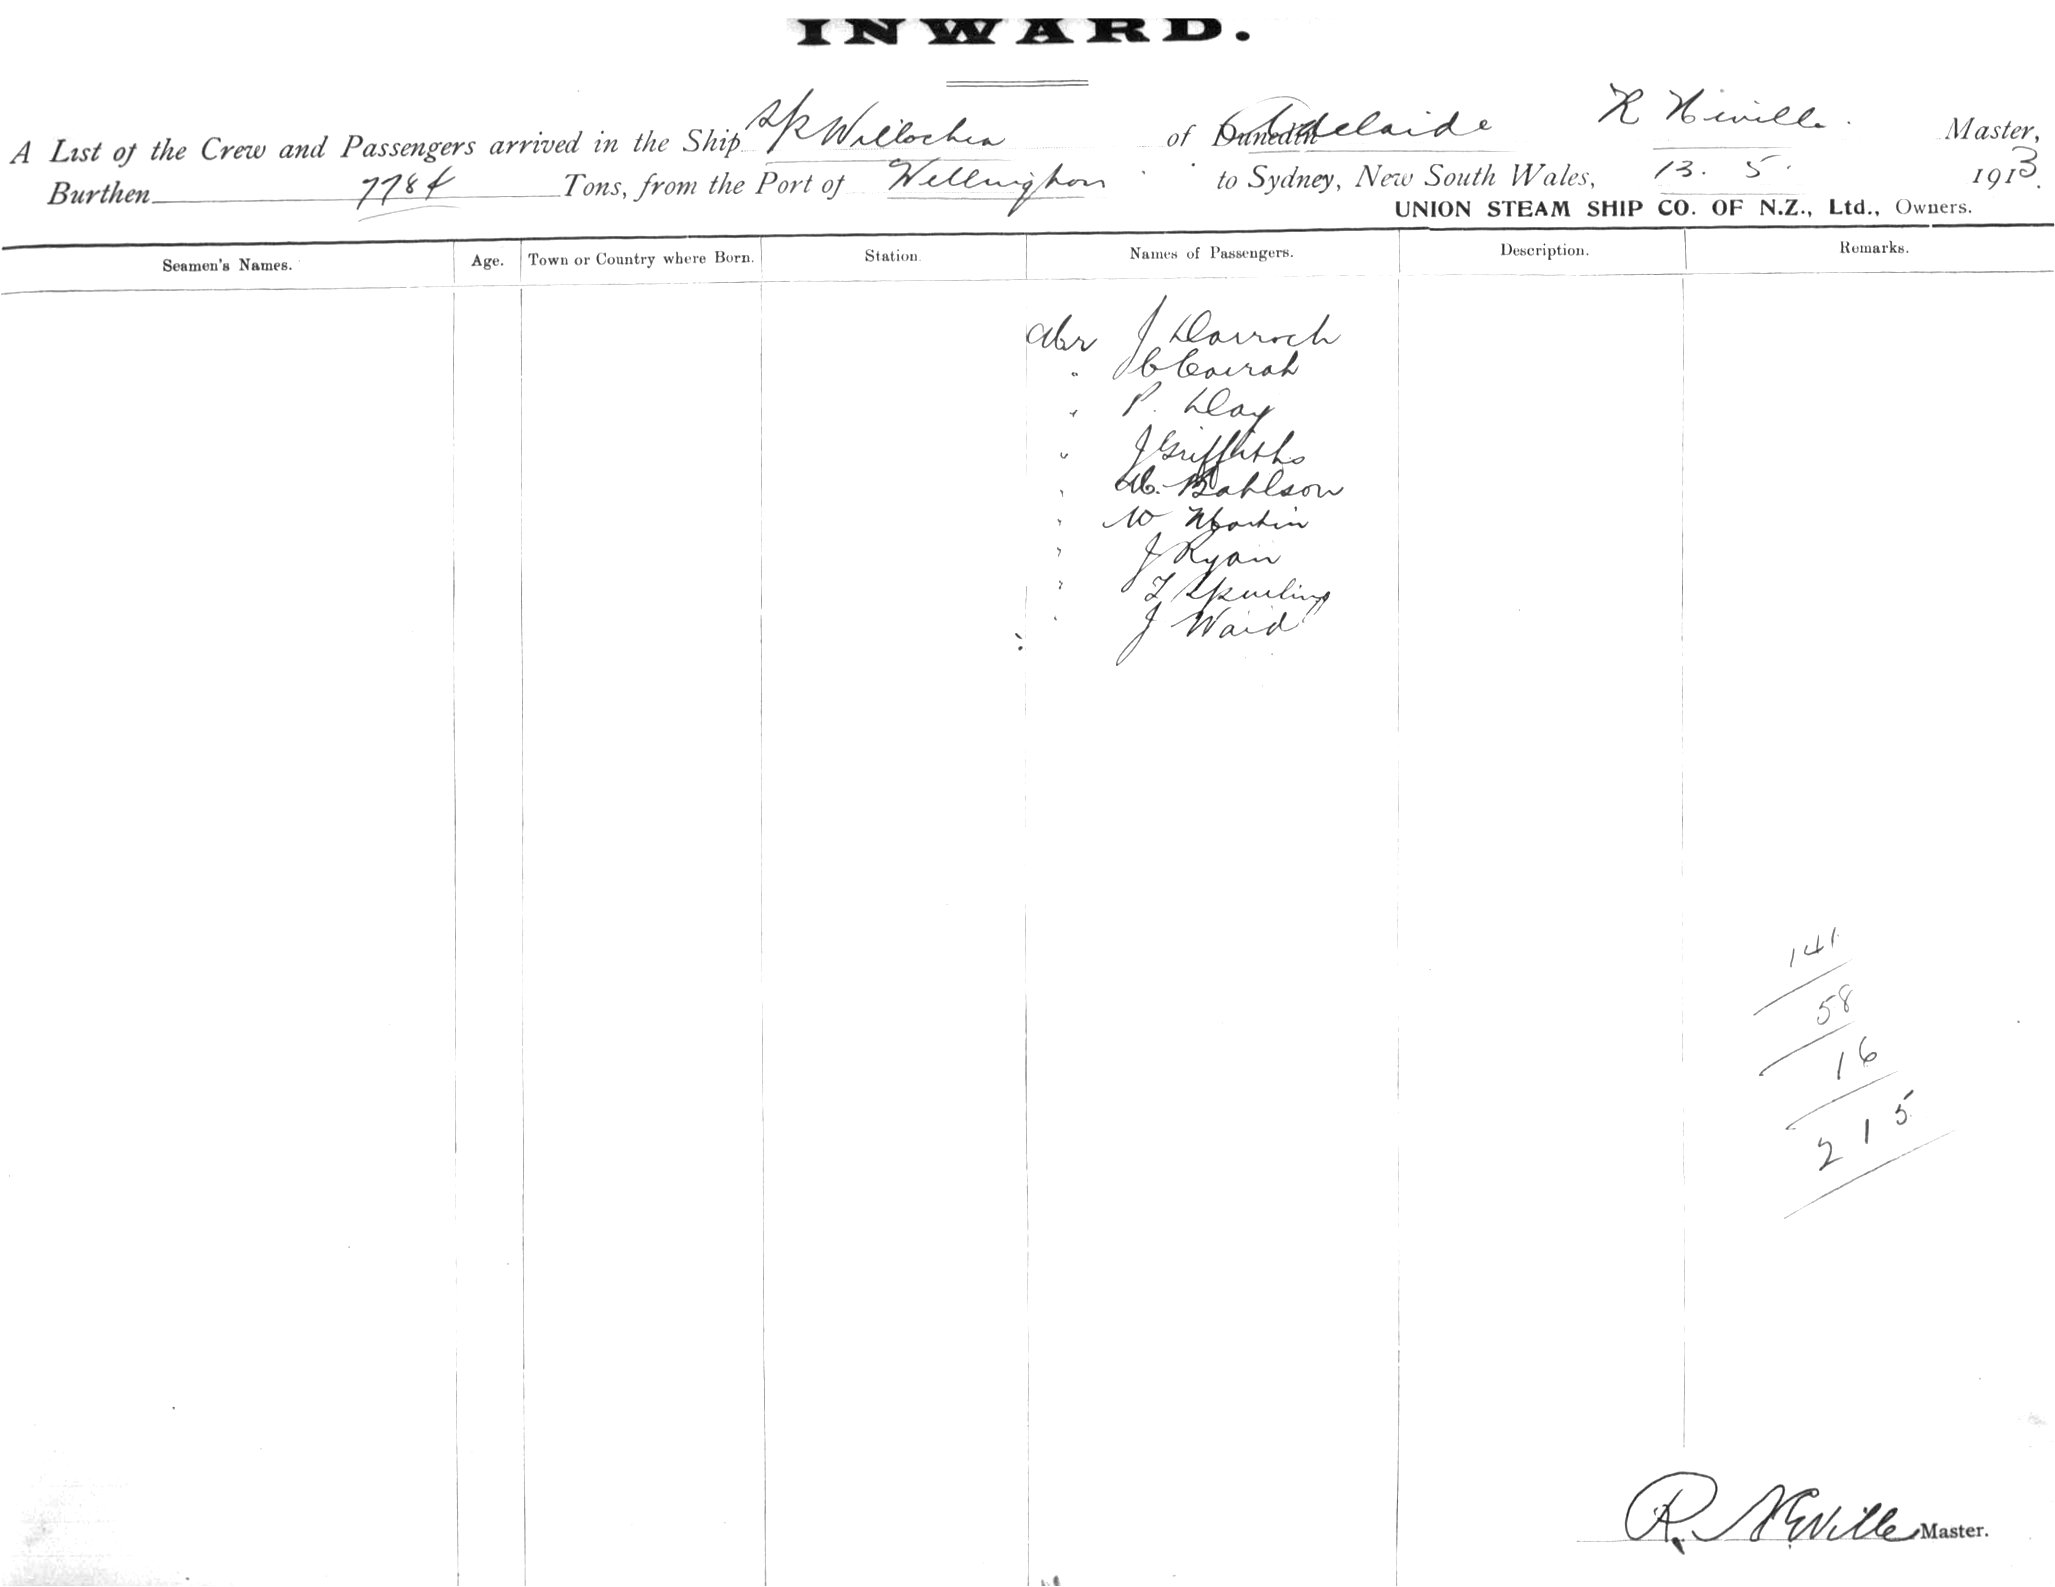 INWARD.
A List of the Crew and Passengers arrived in the Ship of Adelaide R Neville. Master,
Burthen 7784 Tons, from the Port of Wellington to Sydney, New South Wales, 13. 5. 1913.
UNION STEAM SHIP CO. OF N.Z., Ltd., Owners.
Seamen's Names. Age. Town or Country where Born. Station. Names of Passengers. Description. Remarks.
Mr J Darroch
P. Day
J Griffiths
W Martin
J Ryan
Spurling
J Waid
141
58
16
215
R. Neville Master.